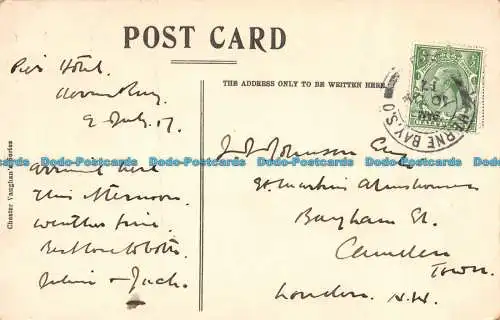 POST CARD
THE ADDRESS ONLY TO BE WRITTEN HERE.
Pier Hotel.
Herne Bay.
9 July. 17.
Arrived here
This afternoon.
Weather fine.
Best love to both.
Chester Vaughan
J. D. Johnson Esq
St. Martins Almshouses
Bayham St.
Camden
Town.
London. N.W.
HERNE BAY. S.O
Dodo-Postcards Dodo-Postcards Dodo-Postcards Dodo-Postcards
Dodo-Postcards Dodo-Postcards Dodo-Postcards Dodo-Postcards